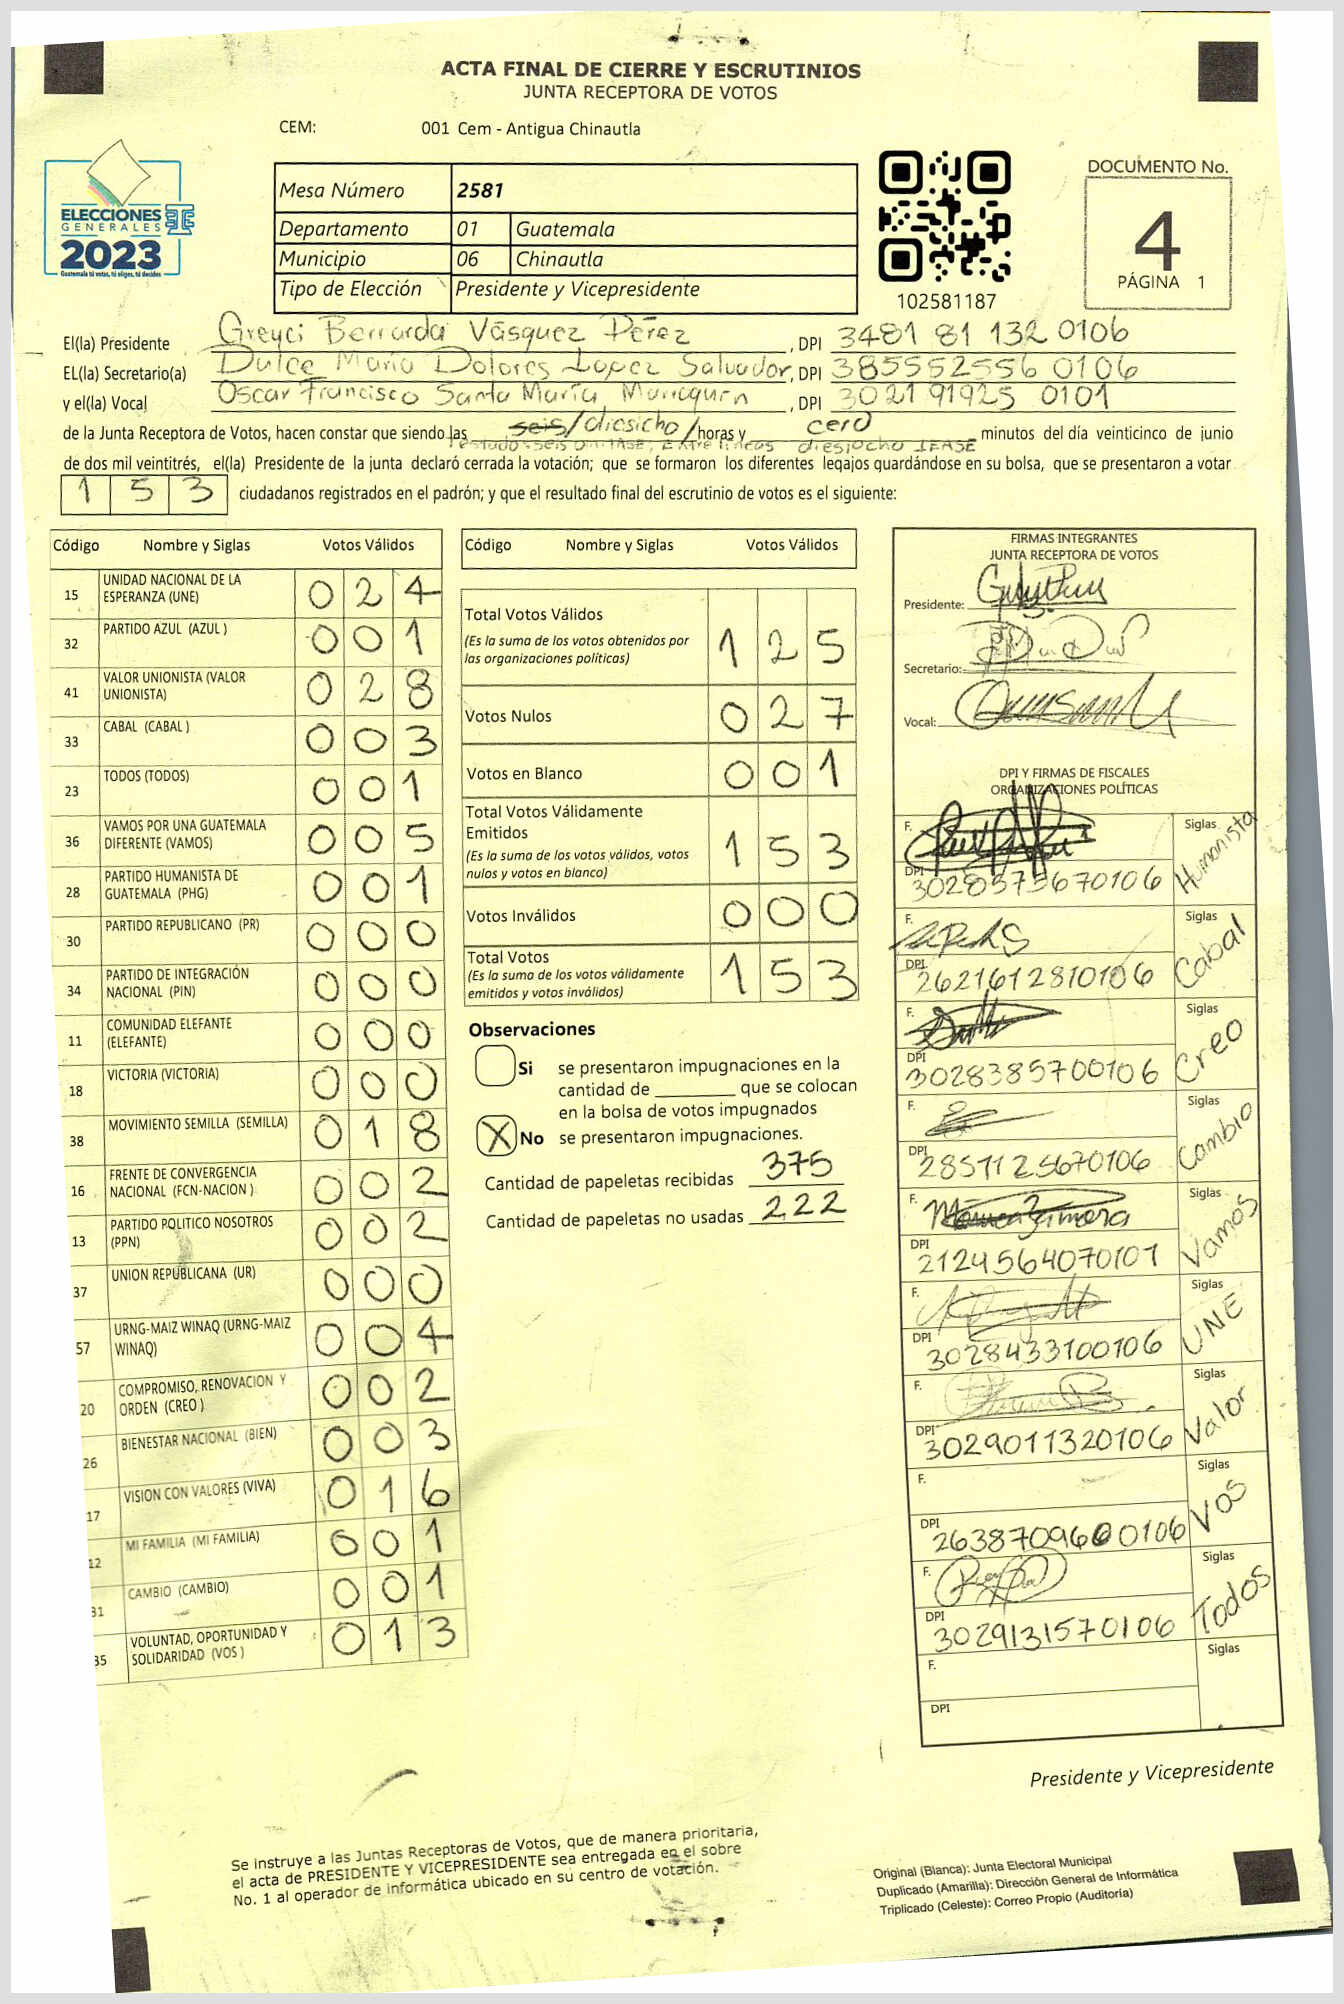 ACTA FINAL DE CIERRE Y ESCRUTINIOS
JUNTA RECEPTORA DE VOTOS
CEM: 001 Cem - Antigua Chinautla
ELECCIONES
GENERALES
2023
Guatemala tú votas, tú eliges, tú decides
Mesa Número 2581
Departamento 01 Guatemala
Municipio 06 Chinautla
Tipo de Elección Presidente y Vicepresidente
102581187
DOCUMENTO No.
4
PÁGINA 1
El(la) Presidente Greyci Bernarda Vásquez Pérez, DPI 3481 81 132 0106
EL(la) Secretario(a) Dulce María Dolores Lopez Salvador, DPI 385552556 0106
y el(la) Vocal Oscar Francisco Santa María, DPI 3021 91925 0101
de la Junta Receptora de Votos, hacen constar que siendo las seis/diesicho/horas y cero minutos del día veinticinco de junio
testado=seis OMITASE, Entre lineas diesiocho LEASE
de dos mil veintitrés, el(la) Presidente de la junta declaró cerrada la votación; que se formaron los diferentes legajos guardándose en su bolsa, que se presentaron a votar
1 5 3 ciudadanos registrados en el padrón; y que el resultado final del escrutinio de votos es el siguiente:
Código Nombre y Siglas Votos Válidos
15 UNIDAD NACIONAL DE LA ESPERANZA (UNE) 0 2 4
32 PARTIDO AZUL (AZUL ) 0 0 1
41 VALOR UNIONISTA (VALOR UNIONISTA) 0 2 8
33 CABAL (CABAL ) 0 0 3
23 TODOS (TODOS) 0 0 1
36 VAMOS POR UNA GUATEMALA DIFERENTE (VAMOS) 0 0 5
28 PARTIDO HUMANISTA DE GUATEMALA (PHG) 0 0 1
30 PARTIDO REPUBLICANO (PR) 0 0 0
34 PARTIDO DE INTEGRACIÓN NACIONAL (PIN) 0 0 0
11 COMUNIDAD ELEFANTE (ELEFANTE) 0 0 0
18 VICTORIA (VICTORIA) 0 0 0
38 MOVIMIENTO SEMILLA (SEMILLA) 0 1 8
16 FRENTE DE CONVERGENCIA NACIONAL (FCN-NACION ) 0 0 2
13 PARTIDO POLITICO NOSOTROS (PPN) 0 0 2
37 UNION REPUBLICANA (UR) 0 0 0
57 URNG-MAIZ WINAQ (URNG-MAIZ WINAQ) 0 0 4
20 COMPROMISO, RENOVACION Y ORDEN (CREO ) 0 0 2
26 BIENESTAR NACIONAL (BIEN) 0 0 3
17 VISION CON VALORES (VIVA) 0 1 6
12 MI FAMILIA (MI FAMILIA) 0 0 1
31 CAMBIO (CAMBIO) 0 0 1
35 VOLUNTAD, OPORTUNIDAD Y SOLIDARIDAD (VOS ) 0 1 3
Código Nombre y Siglas Votos Válidos
Total Votos Válidos 1 2 5
(Es la suma de los votos obtenidos por
las organizaciones políticas)
Votos Nulos 0 2 7
Votos en Blanco 0 0 1
Total Votos Válidamente
Emitidos 1 5 3
(Es la suma de los votos válidos, votos
nulos y votos en blanco)
Votos Inválidos 0 0 0
Total Votos 1 5 3
(Es la suma de los votos válidamente
emitidos y votos inválidos)
Observaciones
Si se presentaron impugnaciones en la
cantidad de ________ que se colocan
en la bolsa de votos impugnados
X No se presentaron impugnaciones.
Cantidad de papeletas recibidas 375
Cantidad de papeletas no usadas 222
FIRMAS INTEGRANTES
JUNTA RECEPTORA DE VOTOS
Presidente:
Secretario:
Vocal:
DPI Y FIRMAS DE FISCALES
ORGANIZACIONES POLÍTICAS
F. Siglas Humanista
DPI 3028575670106
F. Siglas Cabal
DPI 2621612810106
F. Siglas Creo
DPI 3028385700106
F. Siglas Cambio
DPI 2857125670106
F. Siglas Vamos
DPI 2124564070101
F. Siglas UNE
DPI 3028433100106
F. Siglas Valor
DPI 3029011320106
F. Siglas Vos
DPI 2638709600106
F. Siglas Todos
DPI 3029131570106
F. Siglas
DPI
Presidente y Vicepresidente
Se instruye a las Juntas Receptoras de Votos, que de manera prioritaria,
el acta de PRESIDENTE Y VICEPRESIDENTE sea entregada en el sobre
No. 1 al operador de informática ubicado en su centro de votación.
Original (Blanca): Junta Electoral Municipal
Duplicado (Amarilla): Dirección General de Informática
Triplicado (Celeste): Correo Propio (Auditoría)